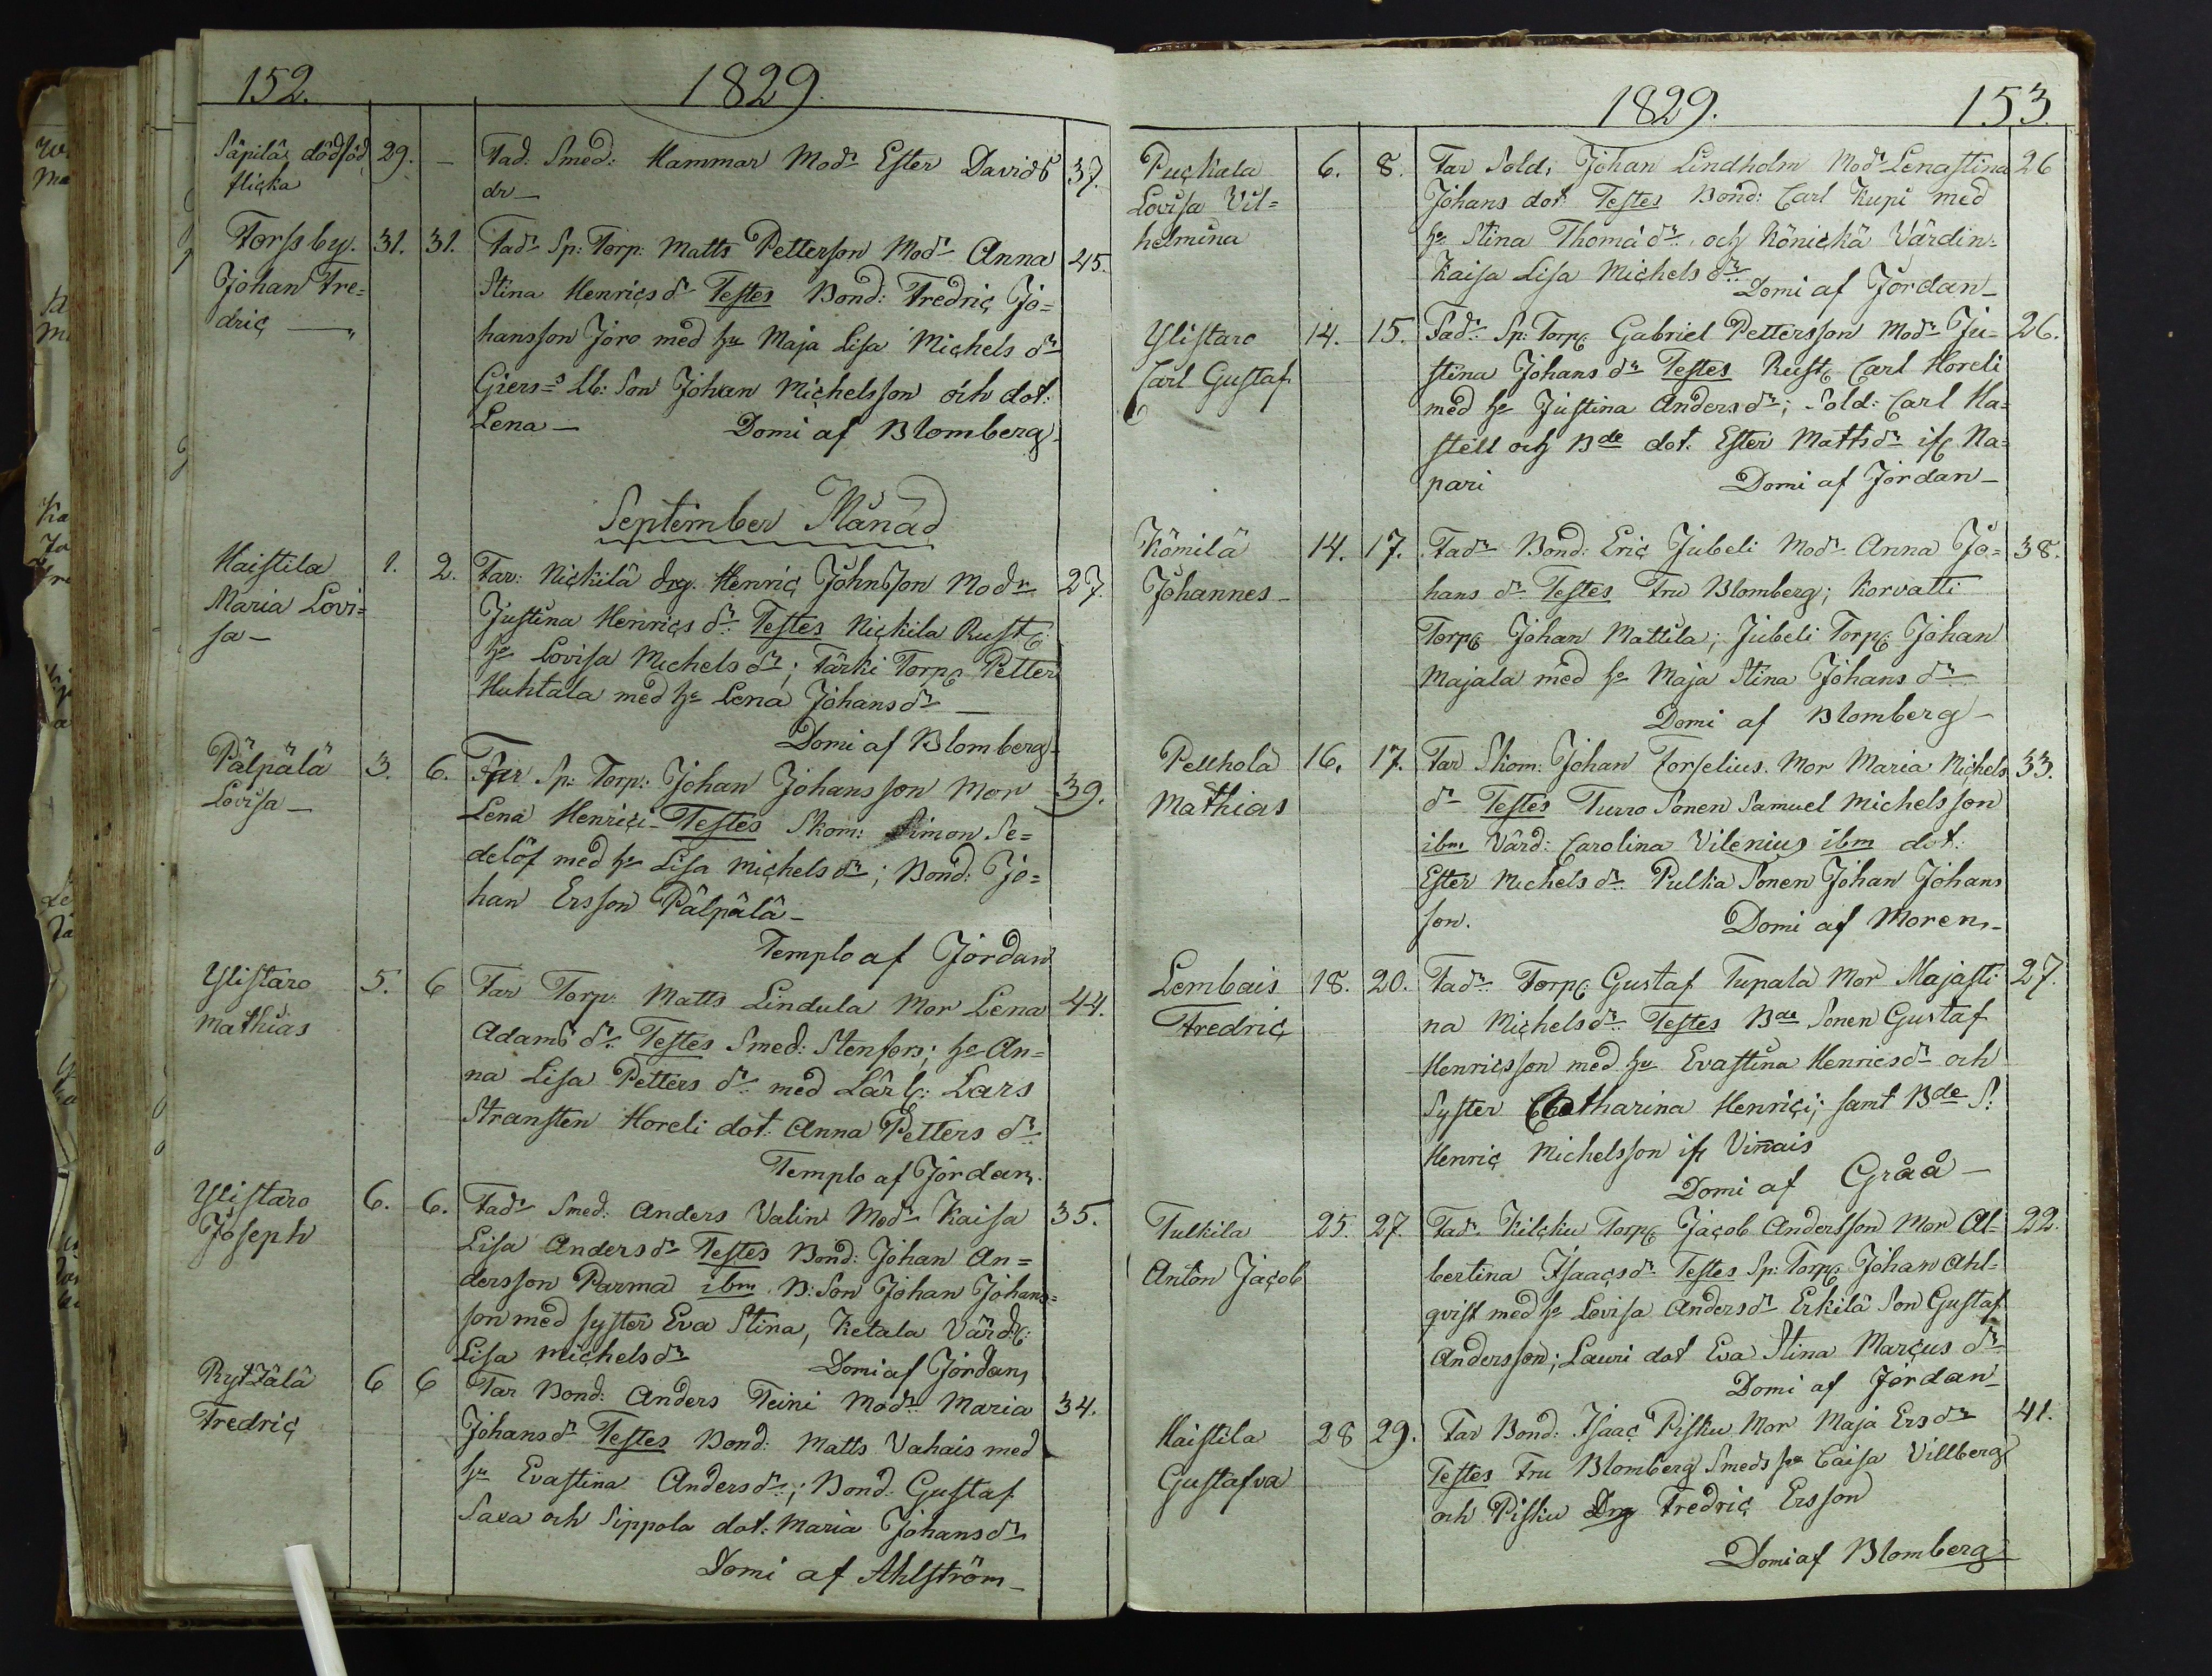 152.
1829.
Säpilä, dödföd 29. — Fad: Smed: Hammar Modr Ester Davids 37.
flicka dr —
Forssby. 31. 31. Fadr Sp: Torp: Matts Petterson Modr Anna 45.
Johan Fre= Stina Henrics dr Testes Bond: Fredric Jo=
dric — hansson Joro med hu Maja Lisa Michels dr
Giers=s Lb: Son Johan Michelsson och dot:
Lena — Domi af Blomberg.
September Månad
Haistila 1. 2. Far: Nickilä drg. Henric Johnsson Modr 27.
Maria Lovi= Justina Henrics dr: Testes Nickila Rust:
sa — hu Lovisa Michels dr; Färki Torp: Petter
Huhtala med hu Lena Johans dr —
Domi af Blomberg.
Pälpälä 3. 6. Far Sp: Torp: Johan Johansson Mor 39.
Lovisa — Lena Henrici — Testes Skom: Simon Se=
delöf med hu Lisa Michels dr; Bond: Jo=
han Ersson Pälpälä —
Templo af Jordan
Ylistaro 5. 6 Far Torp: Matts Lindula Mor Lena 44.
Mathias Adams dr. Testes Smed: Stenfors; hu An=
na Lisa Petters dr med Lärl: Lars
Stransten Horeli dot: Anna Petters dr
Templo af Jordan.
Ylistaro 6. 6. Fadr Smed: Anders Valin Modr Kaisa 35.
Joseph Lisa Anders dr Testes Bond: Johan An=
dersson Parma ibm B: Son Johan Johans=
son med syster Eva Stina, Ketala Värd:
Lisa Michels dr Domi af Jordan,
Rytzälä 6 6 Far Bond: Anders Teini Modr: Maria 34.
Fredric Johans dr Testes Bond: Matts Vahais med
hu Evastina Anders dr; Bond: Gustaf
Saxa och Sippola dot: Maria Johans dr
Domi af Ahlström —
1829. 153.
Puckala 6. 8. Far Sold: Johan Lindholm Modr Lenastina 26
Lovisa Vil= Johans dot: Testes Bond: Carl Kupi med
helmina hu Stina Thomä dr och Könickä Värdin:
Kaisa Lisa Michels dr Domi af Jordan —
Ylistaro 14. 15. Fadr: Sp: Torp: Gabriel Pettersson Modr Ju= 26.
Carl Gustaf stina Johans dr Testes Rust: Carl Horeli
med hu Justina Anders dr; Sold: Carl Ha=
stell och Bde dot: Ester Matts dr if: Na=
pari Domi af Jordan —
Kömilä 14. 17. Fadr Bond: Eric Jubeli Modr Anna Jo= 38.
Johannes — hans dr Testes Fru Blomberg; Korvatti
Torp: Johan Mattila; Jubeli Torp: Johan
Majala med hu Maja Stina Johans dr
Domi af Blomberg —
Pellhola 16. 17. Far Skom: Johan Forselius. Mor Maria Michels 33.
Mathias dr Testes Turro Sonen Samuel Michelsson
ibm Värd: Carolina Vilenius ibm dot:
Ester Michels dr Pulka Sonen Johan Johans
son. Domi af Moren —
Lembais 18. 20. Fadr: Torp: Gustaf Tupala Mor Majasti 27.
Fredric na Michels dr: Testes Bde Sonen Gustaf
Henricsson med hu Evastina Henrics dr och
Syster Catharina Henrici; samt Bde S:
Henric Michelsson if: Vinnais
Domi af Gråå —
Tulkila 25. 27. Fadr. Kilcku Torp: Jacob Andersson Mor Al= 22.
Anton Jacob bertina Isaacs dr Testes Sp: Torp: Johan Ahl=
qvist med hu Lovisa Anders dr Erkilä Son Gustaf
Andersson; Lauri dot Eva Stina Marcus dr
Domi af Jordan —
Haistila 28 29. Far Bond: Isaac Pisku Mor Maja Ers dr 41.
Gustafva Testes Fru Blomberg Smeds hu Caisa Villberg
och Pisku Drg Fredric Ersson
Domi af Blomberg